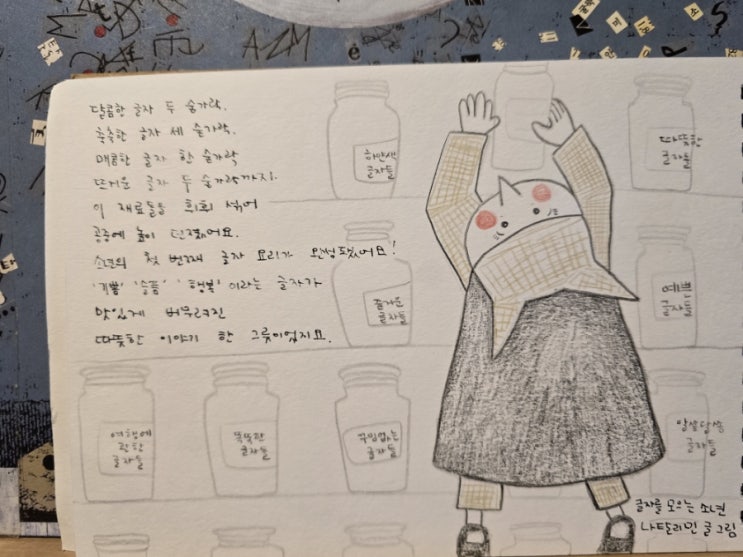 달콤한 글자 두 숟가락.
축축한 글자 세 숟가락.
매콤한 글자 한 숟가락
뜨거운 글자 두 숟가락까지.
이 재료들을 휘휘 섞어
공중에 높이 던졌어요.
소년의 첫 번째 글자 요리가 완성됐어요!
'기쁨' '슬픔' '행복' 이라는 글자가
맛있게 버무려진
따뜻한 이야기 한 그릇이었지요.
하얀색
글자들
따뜻한
글자들
즐거운
글자들
예쁜
글자들
여행에
관한
글자들
똑똑한
글자들
꾸밈없는
글자들
알쏭달쏭
글자들
글자를 모으는 소년
나탈리 민 글 그림